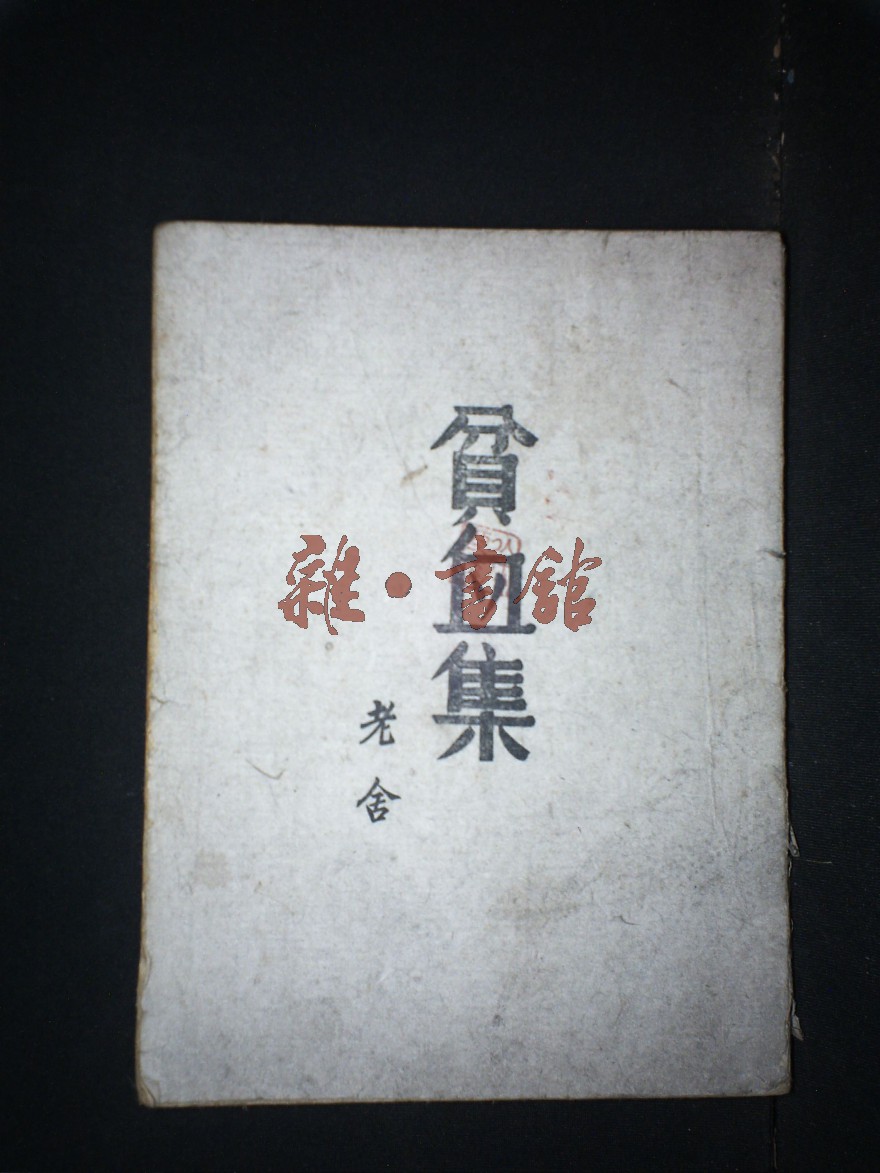 貧血集
老舍
雜·書館